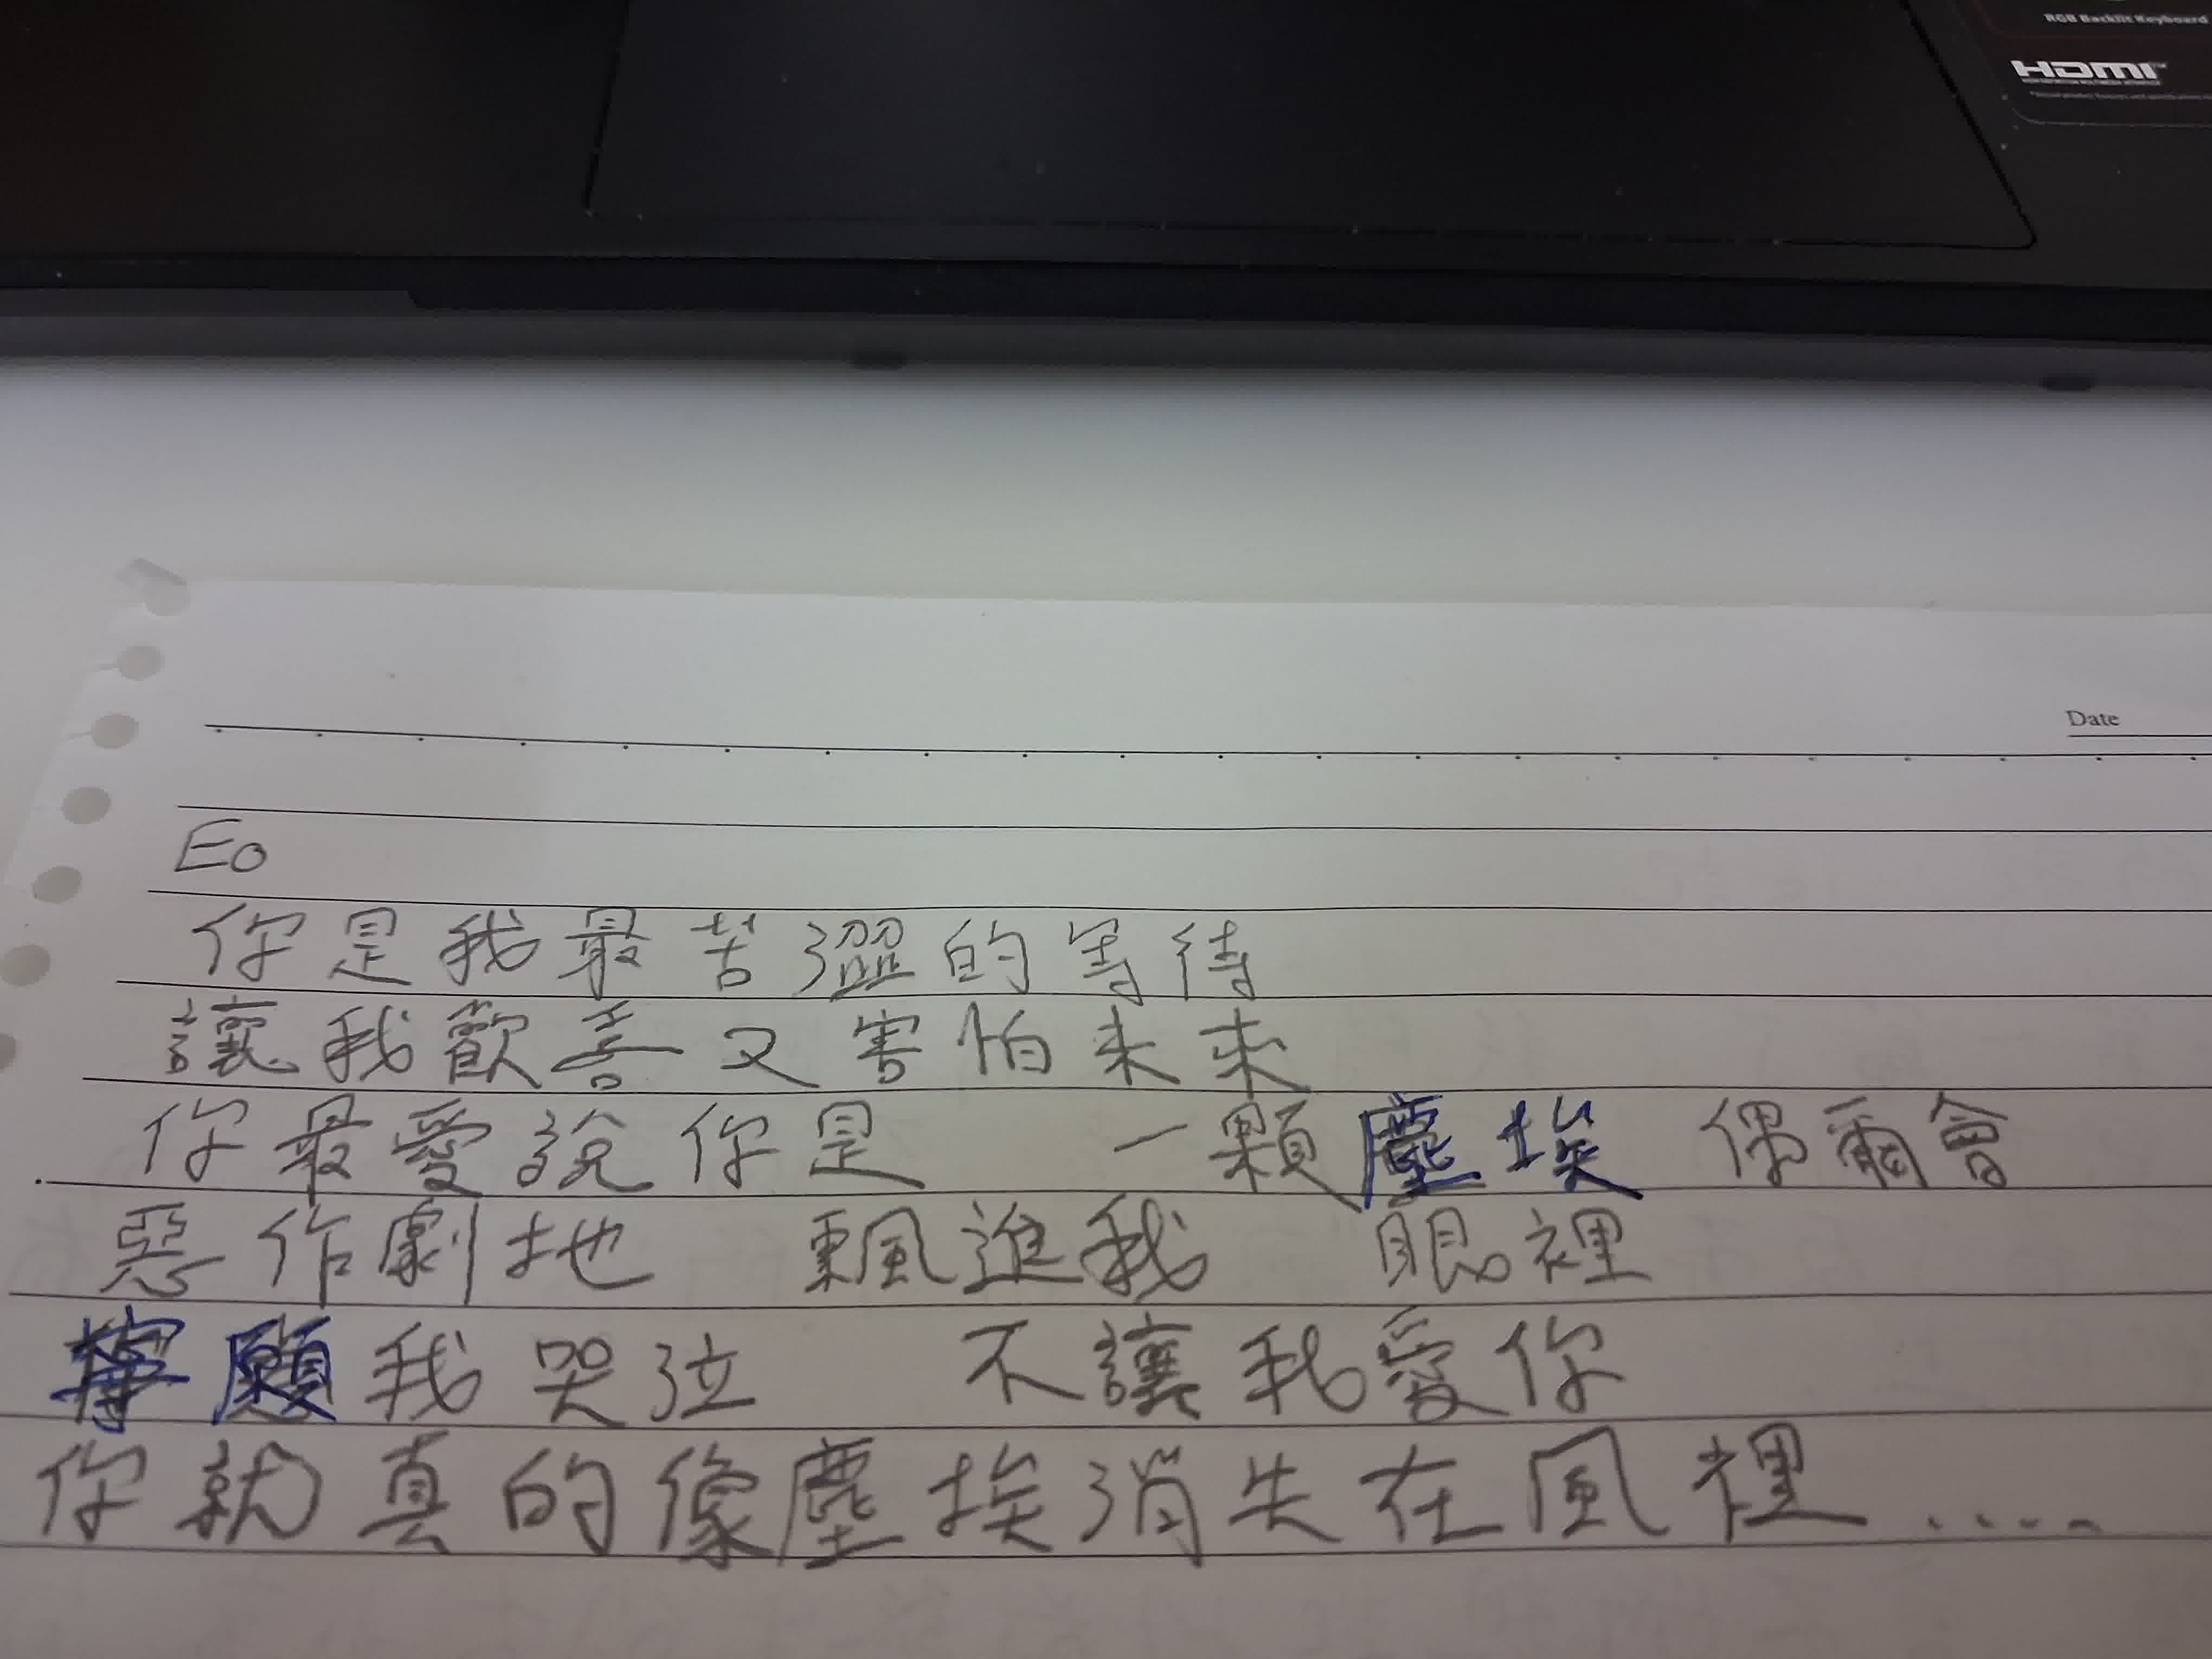 RGB Backlit Keyboard
HDMI
Date
Eo
你是我最苦澀的等待
讓我歡喜又害怕未來
你最愛說你是 一顆塵埃 偶爾會
惡作劇地 飄進我 眼裡
寧願我哭泣 不讓我愛你
你就真的像塵埃消失在風裡....